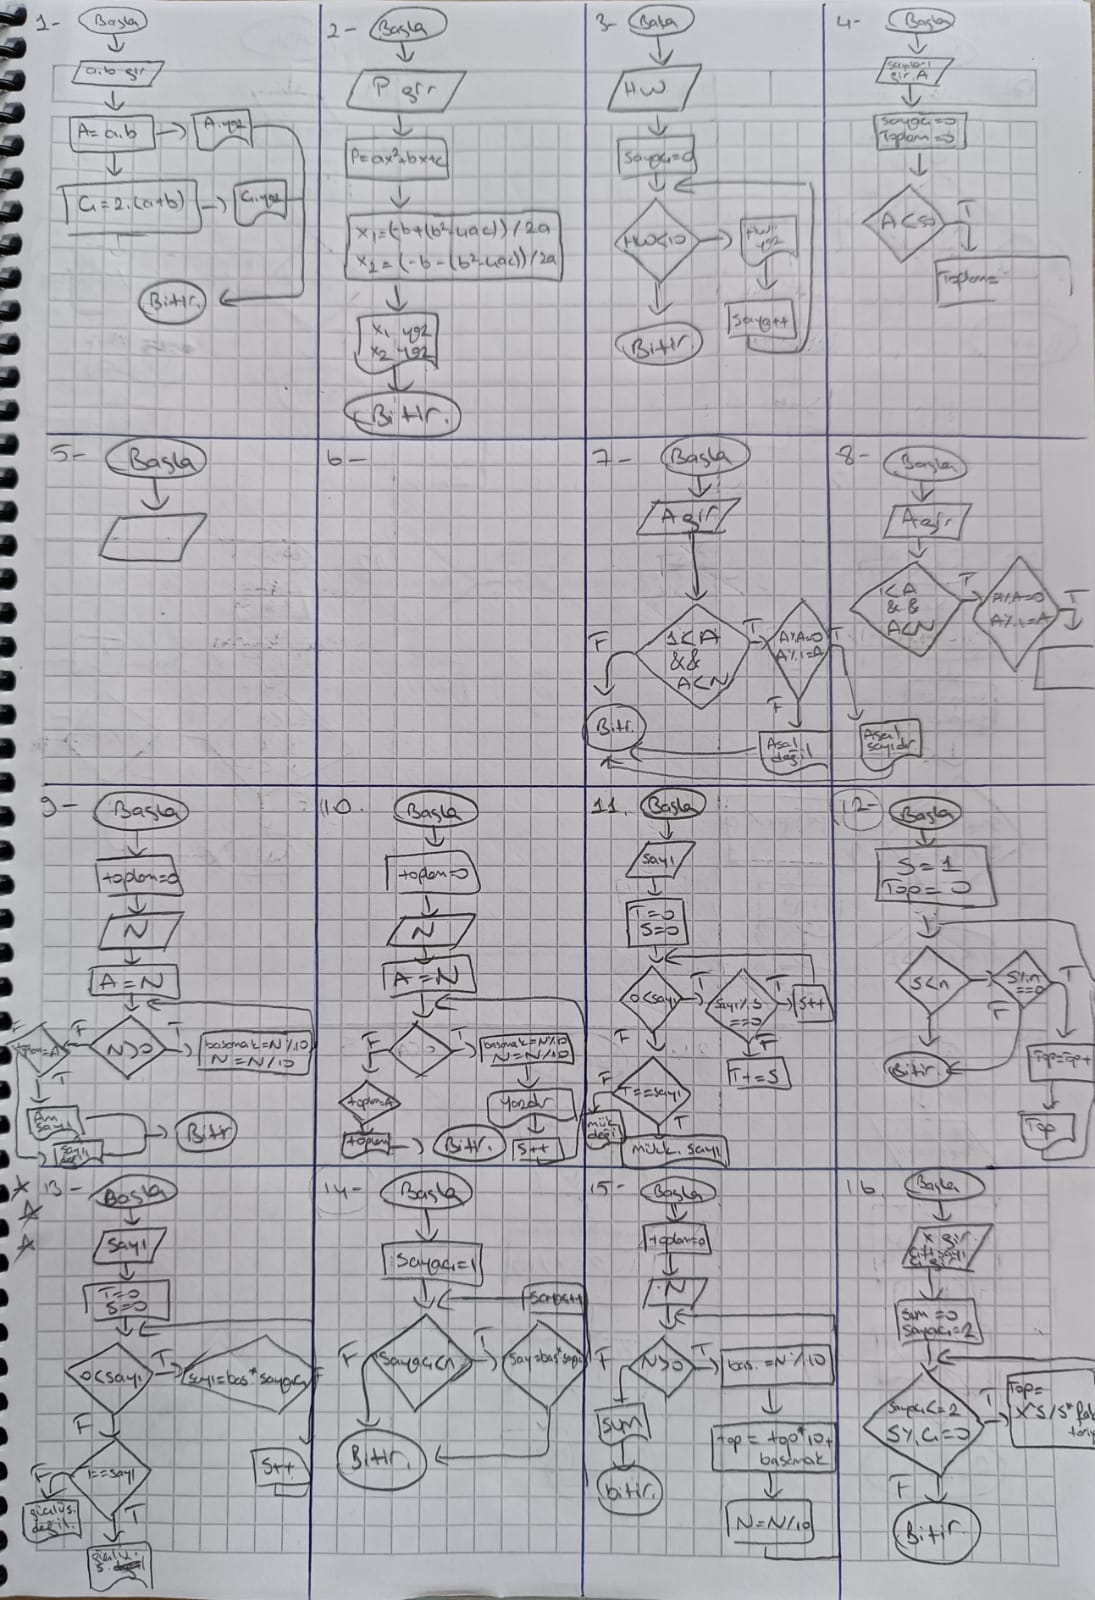 1-
Başla
a.b gir
A = a.b
A.yaz
Ç = 2.(a+b)
Ç.yaz
Bitir.
2-
Başla
P gir
P=ax²+bx+c
x1=(-b+(b²-4ac))/2a
x2=(-b-(b²-4ac))/2a
x1 yaz
x2 yaz
Bitir.
3-
H.W
Sayaç=0
HW<10
HW.
yaz
Sayaç++
Bitir
4-
Başla
gir.A
Sayaç=0
Toplam=0
A<50
T
Toplam=
5-
Başla
6-
7-
Başla
A gir
1<A
&&
A<N
T
F
A%A=0
A%1=A
T
F
Bitir.
Asal
değil
Asal
sayıdır
8-
Başla
A gir
1<A
&&
A<N
T
A%A=0
A%1=A
T
9-
Başla
toplam=0
N
A=N
N>0
T
F
basamak=N%10
N=N/10
F
T
Bitir
10.
Başla
toplam=0
N
A=N
F
T
basamak=N%10
N=N/10
toplam=A
yazdır
S++
toplam
Bitir.
11.
Başla
Sayı
T=0
S=0
0<sayı
T
F
sayı%S
==0
T
F
S++
T+=S
T==sayı
F
T
mük.
değil
mükk. sayı
12-
Başla
S=1
Top=0
S<n
S%n
==0
T
F
Bitir.
Top=Top+
Top
13-
Başla
Sayı
T=0
S=0
0<sayı
T
F
sayı=bas*sayaç
F
S++
==sayı
F
T
değil.
14-
Başla
Sayaç=1
Sayaç<n
T
F
Bitir.
15-
Başla
toplam=0
N
N>0
T
F
bas.=N%10
sum
top=top*10+
basamak
bitir.
N=N/10
16.
Başla
x gir
sum=0
Sayaç=2
Sayaç<=2
S%Ç=0
T
F
Top=
X^S/S*fak
toriy
Bitir.